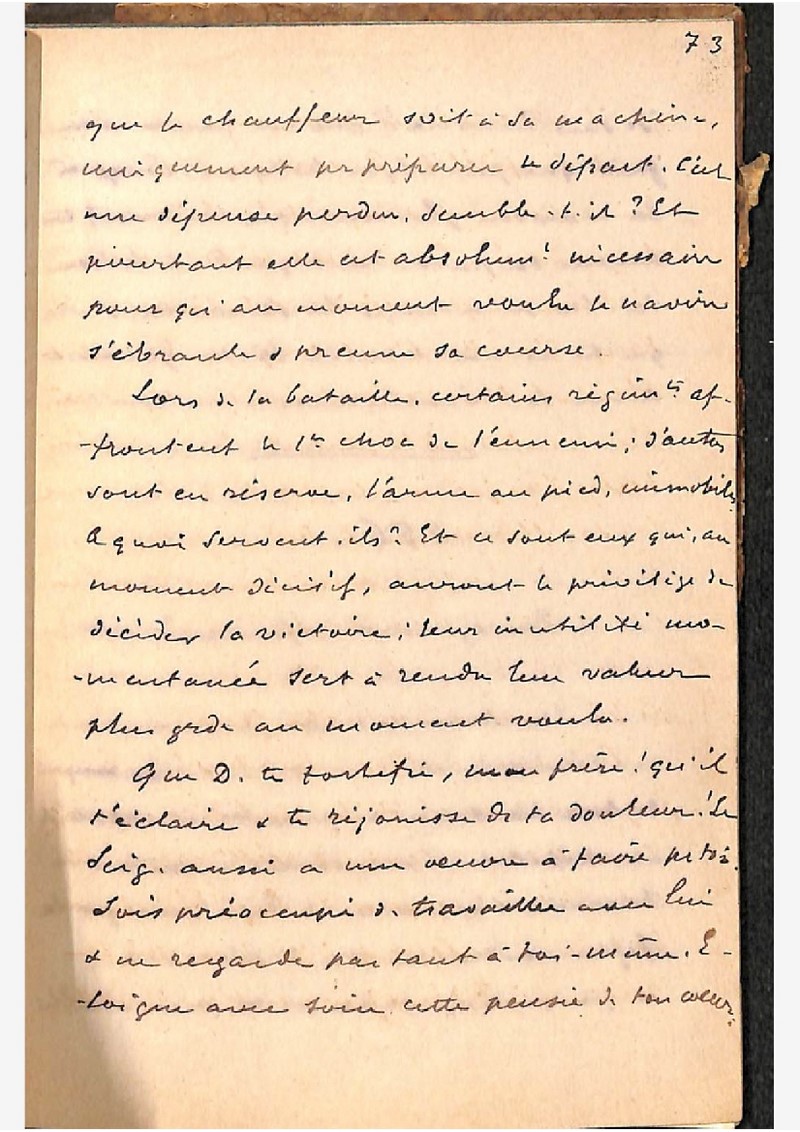 73
que le chauffeur soit à sa machine,
uniquement pr préparer le départ. C'est
une dépense perdue, semble-t-il ? Et
pourtant elle est absolumt nécessaire
pour qu'au moment voulu le navire
s'ébranle & prenne sa course.
Lors de la bataille, certains régimts af-
-frontent le 1er choc de l'ennemi ; d'autres
sont en réserve, l'arme au pied, immobiles.
A quoi servent-ils ? Et ce sont eux qui, au
moment décisif, auront le privilège de
décider la victoire ; leur inutilité mo-
-mentanée sert à rendre leur valeur
plus grde au moment voulu.
Que D. te fortifie, mon frère ! qu'il
t'éclaire & te réjouisse ds ta douleur ! Le
Seig. aussi a une oeuvre à faire pr toi.
Sois préoccupé de travailler avec lui
& ne regarde pas tant à toi-même. E-
-loigne avec soin cette pensée de ton coeur :